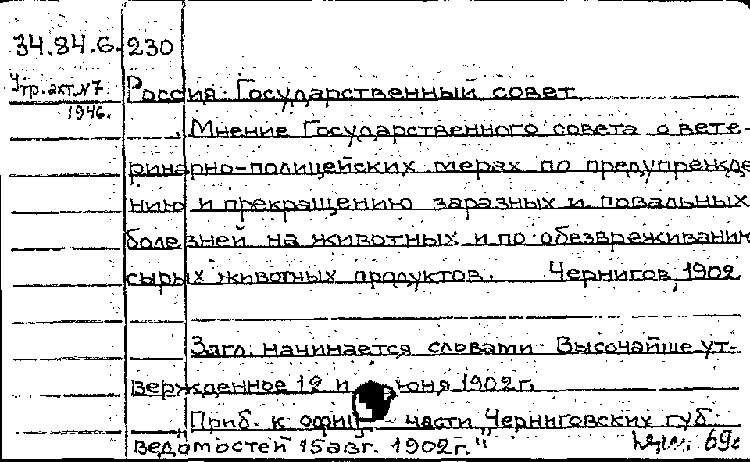 34.84.6.230
Утр. акт. №7
1946.
Россия. Государственный совет
Мнение Государственного совета о вете-
ринарно-полицейских мерах по предупрежде
нию и прекращению заразных и повальных
болезней на животных и по обезвреживанию
сырых животных продуктов. Чернигов, 1902
Загл. начинается словами: Высочайше ут-
вержденное 12 июня 1902 г.
"Приб. к офиц. части Черниговских губ.
Ведомостей 15 авг. 1902 г."
69г